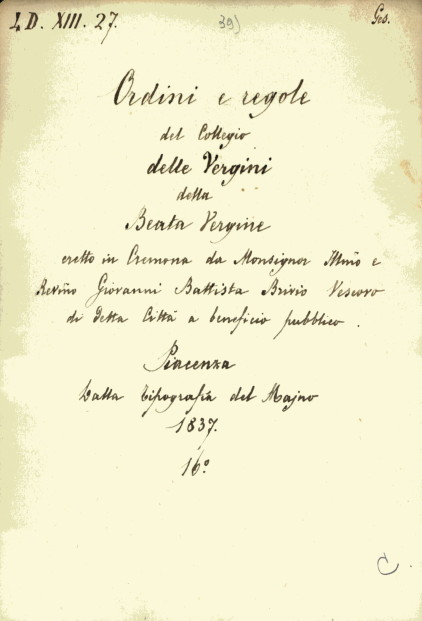 LD. XIII. 27.
39)
Ges.
Ordini e regole
del Collegio
delle Vergini
della
Beata Vergine
eretto in Cremona da Monsignor Illmo e
Revmo Giovanni Battista Brivio Vescovo
di detta Città a beneficio pubblico.
Piacenza
Dalla tipografia del Majno
1837.
16°
C.